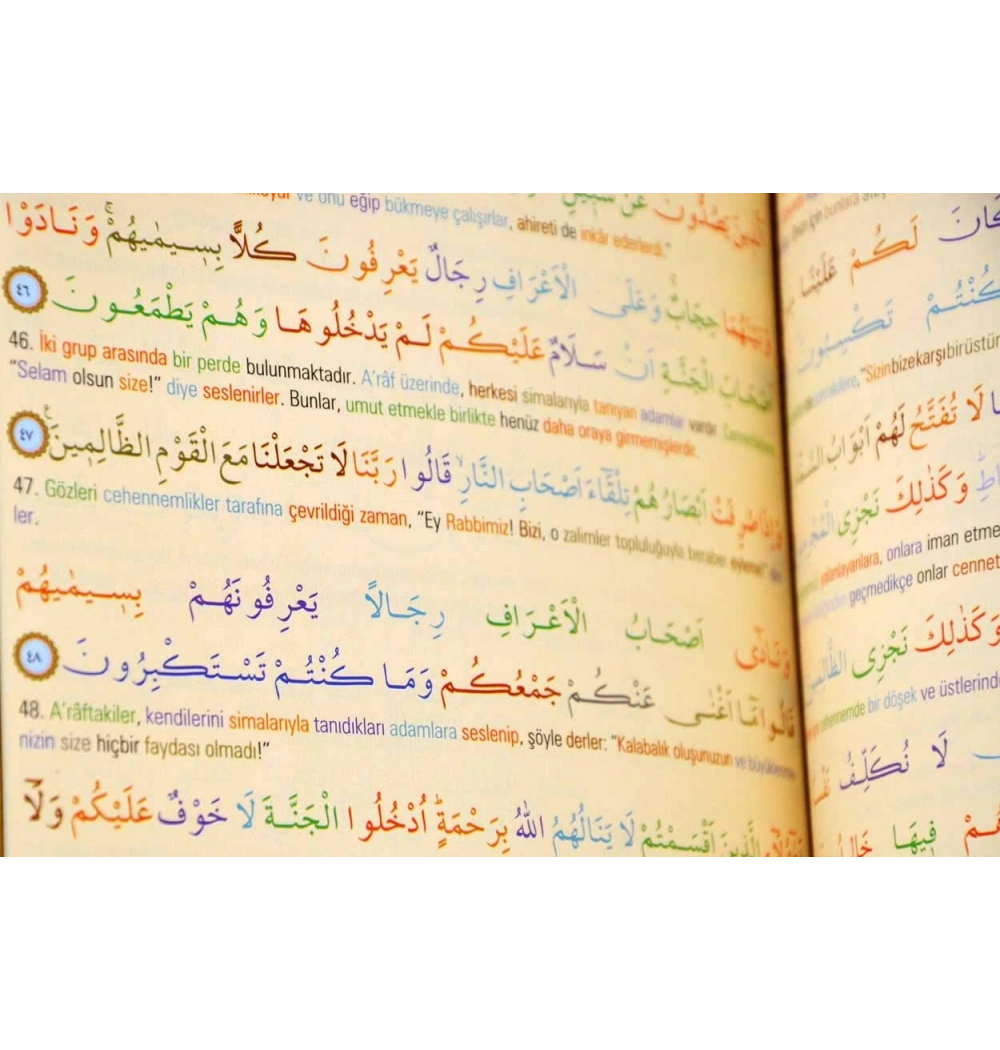 ve onu eğip bükmeye çalışırlar, ahireti de inkâr ederlerdi.”
وَبَيْنَهُمَا حِجَابٌ وَعَلَى الْاَعْرَافِ رِجَالٌ يَعْرِفُونَ كُلًّا بِسٖيمٰيهُمْ وَنَادَوْا
اَصْحَابَ الْجَنَّةِ اَنْ سَلَامٌ عَلَيْكُمْ لَمْ يَدْخُلُوهَا وَهُمْ يَطْمَعُونَ ٤٦
46. İki grup arasında bir perde bulunmaktadır. A’râf üzerinde, herkesi simalarıyla tanıyan adamlar vardır.
“Selam olsun size!” diye seslenirler. Bunlar, umut etmekle birlikte henüz daha oraya girmemişlerdir.
وَاِذَا صُرِفَتْ اَبْصَارُهُمْ تِلْقَٓاءَ اَصْحَابِ النَّارِ قَالُوا رَبَّنَا لَا تَجْعَلْنَا مَعَ الْقَوْمِ الظَّالِمٖينَ ٤٧
47. Gözleri cehennemlikler tarafına çevrildiği zaman, “Ey Rabbimiz! Bizi, o zalimler topluluğuyla beraber eyleme”
ler.
وَنَادٰٓى اَصْحَابُ الْاَعْرَافِ رِجَالًا يَعْرِفُونَهُمْ بِسٖيمٰيهُمْ
قَالُوا مَٓا اَغْنٰى عَنْكُمْ جَمْعُكُمْ وَمَا كُنْتُمْ تَسْتَكْبِرُونَ ٤٨
48. A’râftakiler, kendilerini simalarıyla tanıdıkları adamlara seslenip, şöyle derler: “Kalabalık oluşunuzun ve
nizin size hiçbir faydası olmadı!”
الَّذٖينَ اَقْسَمْتُمْ لَا يَنَالُهُمُ اللّٰهُ بِرَحْمَةٍ اُدْخُلُوا الْجَنَّةَ لَا خَوْفٌ عَلَيْكُمْ وَلَٓا
كَانَ لَكُمْ عَلَيْنَا
كُنْتُمْ تَكْسِبُونَ
“Sizin bize karşı bir üstün
لَا تُفَتَّحُ لَهُمْ اَبْوَابُ
وَكَذٰلِكَ نَجْزِى
yalanlayanlara, onlara iman etme
geçmedikçe onlar cennet
وَكَذٰلِكَ نَجْزِى
bir döşek ve üstlerinde
لَا نُكَلِّفُ
فٖيهَا